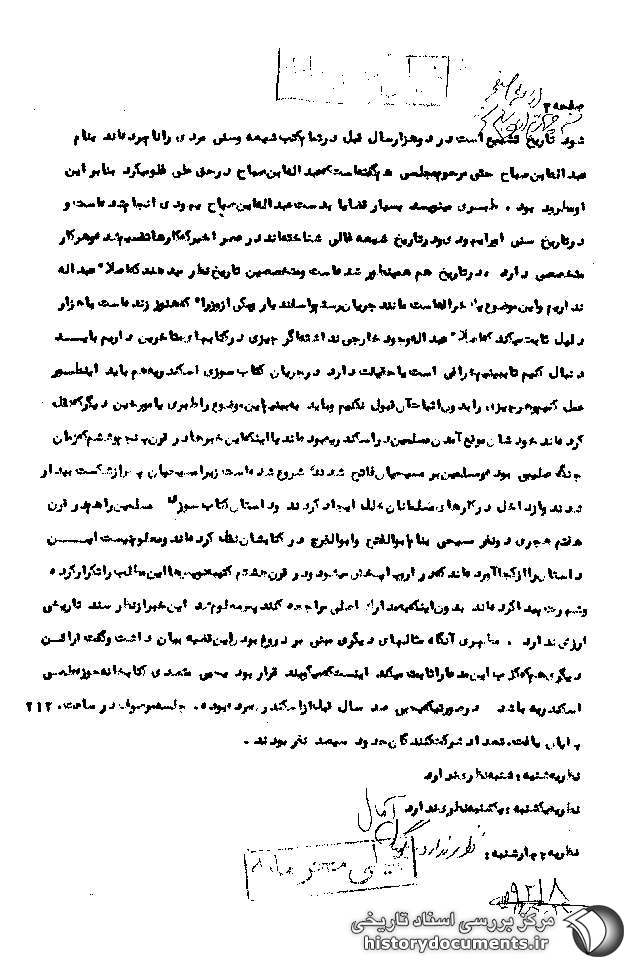 صفحه ۲
شود تاریخ تشیع است در دو هزار سال قبل در تمام کتب شیعه و سنی مردی را نام برده‌اند بنام
عبدالله ابن صباح حتی مرحوم مجلسی هم گفته است که عبدالله ابن صباح در حق علی غلو میکرد بنابر این
او مطرود بود. طبری مینویسد بسیار قضایا بدست عبدالله ابن صباح یهودی انجام شده است و
در تاریخ سنی او را یهودی و در تاریخ شیعه غالی شناخته‌اند در عصر اخیر که کارها تقسیم شده و هر کار
متخصصی دارد. در تاریخ هم همینطور شده است و متخصصین تاریخ نظر میدهند که اصلا عبداله
نداریم و این موضوع یک خرافه است مانند جریان رستم و اسفندیار یکی از وزراء که هنوز زنده است با هزار
دلیل ثابت میکند که اصلا عبداله وجود خارجی نداشته اگر چیزی در کتابهای متاخرین داریم بایــد
دنبال کنیم تا ببینیم خرافی است یا حقیقت دارد در جریان کتاب سوزی اسکندریه هم باید اینطــور
عمل کنیم و هر چیزی را بدون اثبات آن قبول نکنیم و باید به بینیم این موضوع را طبری یا مورخین دیگر که نقل
کرده‌اند خودشان موقع آمدن مسلمین در اسکندریه بوده‌اند یا اینکه این خبرها در قرن پنجم و ششم که زمان
جنگ صلیبی بود و مسلمین بر مسیحیان فاتح شدند شروع شده است زیرا مسیحیان پس از شکست بیدار
شدند و از داخل در کارهای مسلمانان خلل ایجاد کردند و داستان کتاب سوزی مسلمین را هم در قرن
هفتم هجری دو نفر مسیحی بنام ابوالفتح و ابوالفرج در کتابشان نقل کرده‌اند و معلوم نیست ایــن
داستان را از کجا آورده‌اند که در اروپا پخش میشود و در قرن هشتم کتیبه نویس‌ها این مطلب را تکرار کرده
و شهرت پیدا کرده‌اند بدون اینکه به مدارک اصلی مراجعه کنند پس معلوم شد این خبر از نظر سند تاریخی
ارزش ندارد. مطهری آنگاه مثالهای دیگری مبنی بر دروغ بودن این قضیه بیان داشت و گفت قرائن
دیگری هم که کذب این مدعا را ثابت میکند اینست که میگویند قرار بود یحیی متصدی کتابخانه حوزه علمی
اسکندریه باشد در صورتیکه یحیی صد سال قبل از اسکندر مرده بوده. جلسه موصوف در ساعت ۲۱۲۰
پایان یافت، تعداد شرکت کنندگان حدود سیصد نفر بودند.
نظریه شنبه: شنبه نظری ندارد
نظریه یکشنبه: یکشنبه نظری ندارد
آمال
نظریه چهارشنبه: نظری ندارد
خیلی محرمانه
۹۲۱۸
مرکز بررسی اسناد تاریخی
historydocuments.ir